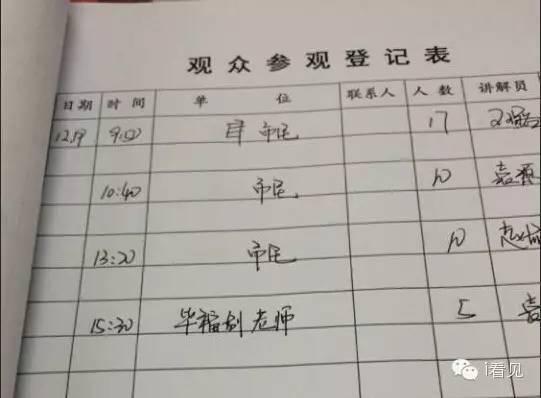 观众参观登记表
日期 时间 单位 联系人 人数 讲解员
12.19 9:50 市民 17
10:40 市民 10
13:20 市民 10
15:30 毕福剑老师 5
i看见